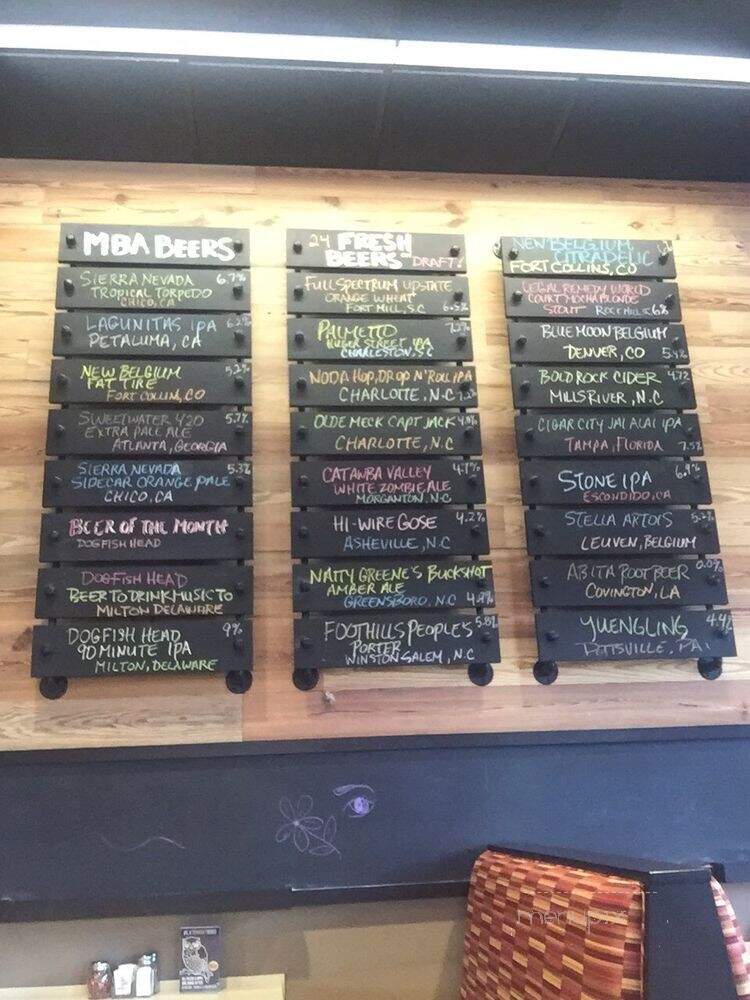 MBA BEERS
SIERRA NEVADA 6.7%
TROPICAL TORPEDO
CHICO, CA
LAGUNITAS IPA 6.2%
PETALUMA, CA
NEW BELGIUM 5.2%
FAT TIRE
FORT COLLINS, CO
SWEETWATER 420 5.7%
EXTRA PALE ALE
ATLANTA, GEORGIA
SIERRA NEVADA 5.3%
SIDECAR ORANGE PALE
CHICO, CA
BEER OF THE MONTH
DOGFISH HEAD
DOGFISH HEAD
BEER TO DRINK MUSIC TO
MILTON DELAWARE
DOGFISH HEAD 9%
90 MINUTE IPA
MILTON, DELAWARE
24 FRESH
BEERS ON DRAFT!
FULL SPECTRUM UPSTATE
ORANGE WHEAT
FORT MILL, S.C 6.5%
PALMETTO 7.2%
HUGER STREET IPA
CHARLESTON, S.C
NODA HOP, DROP N' ROLL IPA
CHARLOTTE, N.C
OLDE MECK CAPT JACK 4.8%
CHARLOTTE, N.C
CATAWBA VALLEY 4.7%
WHITE ZOMBIE ALE
MORGANTON, N.C
HI-WIRE GOSE 4.2%
ASHEVILLE, N.C
NATTY GREENE'S BUCKSHOT
AMBER ALE
GREENSBORO, N.C 4.8%
FOOTHILLS PEOPLE'S 5.8%
PORTER
WINSTON SALEM, N.C
NEW BELGIUM
CITRADELIC
FORT COLLINS, CO
LEGAL REMEDY WORLD
COURT MOCHA BLONDE
STOUT ROCK HILL S.C
BLUE MOON BELGIUM
DENVER, CO 5.4%
BOLD ROCK CIDER 4.7%
MILLS RIVER, N.C
CIGAR CITY JAI ALAI IPA
TAMPA, FLORIDA 7.5%
STONE IPA 6.9%
ESCONDIDO, CA
STELLA ARTOIS 5.2%
LEUVEN, BELGIUM
ABITA ROOT BEER 0.0%
COVINGTON, LA
YUENGLING 4.4%
POTTSVILLE, PA